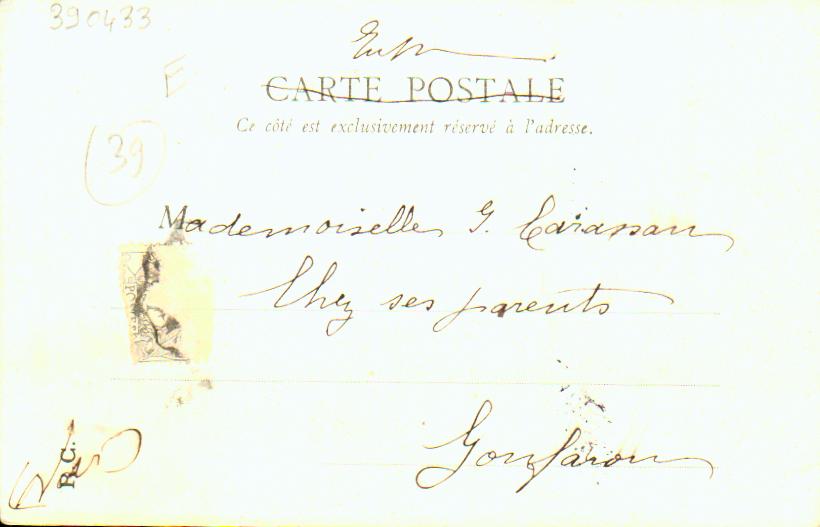 390433
E
CARTE POSTALE
Ce côté est exclusivement réservé à l'adresse.
39
Mademoiselle G.
Chez ses parents
Gonfaron
Var
B.C.